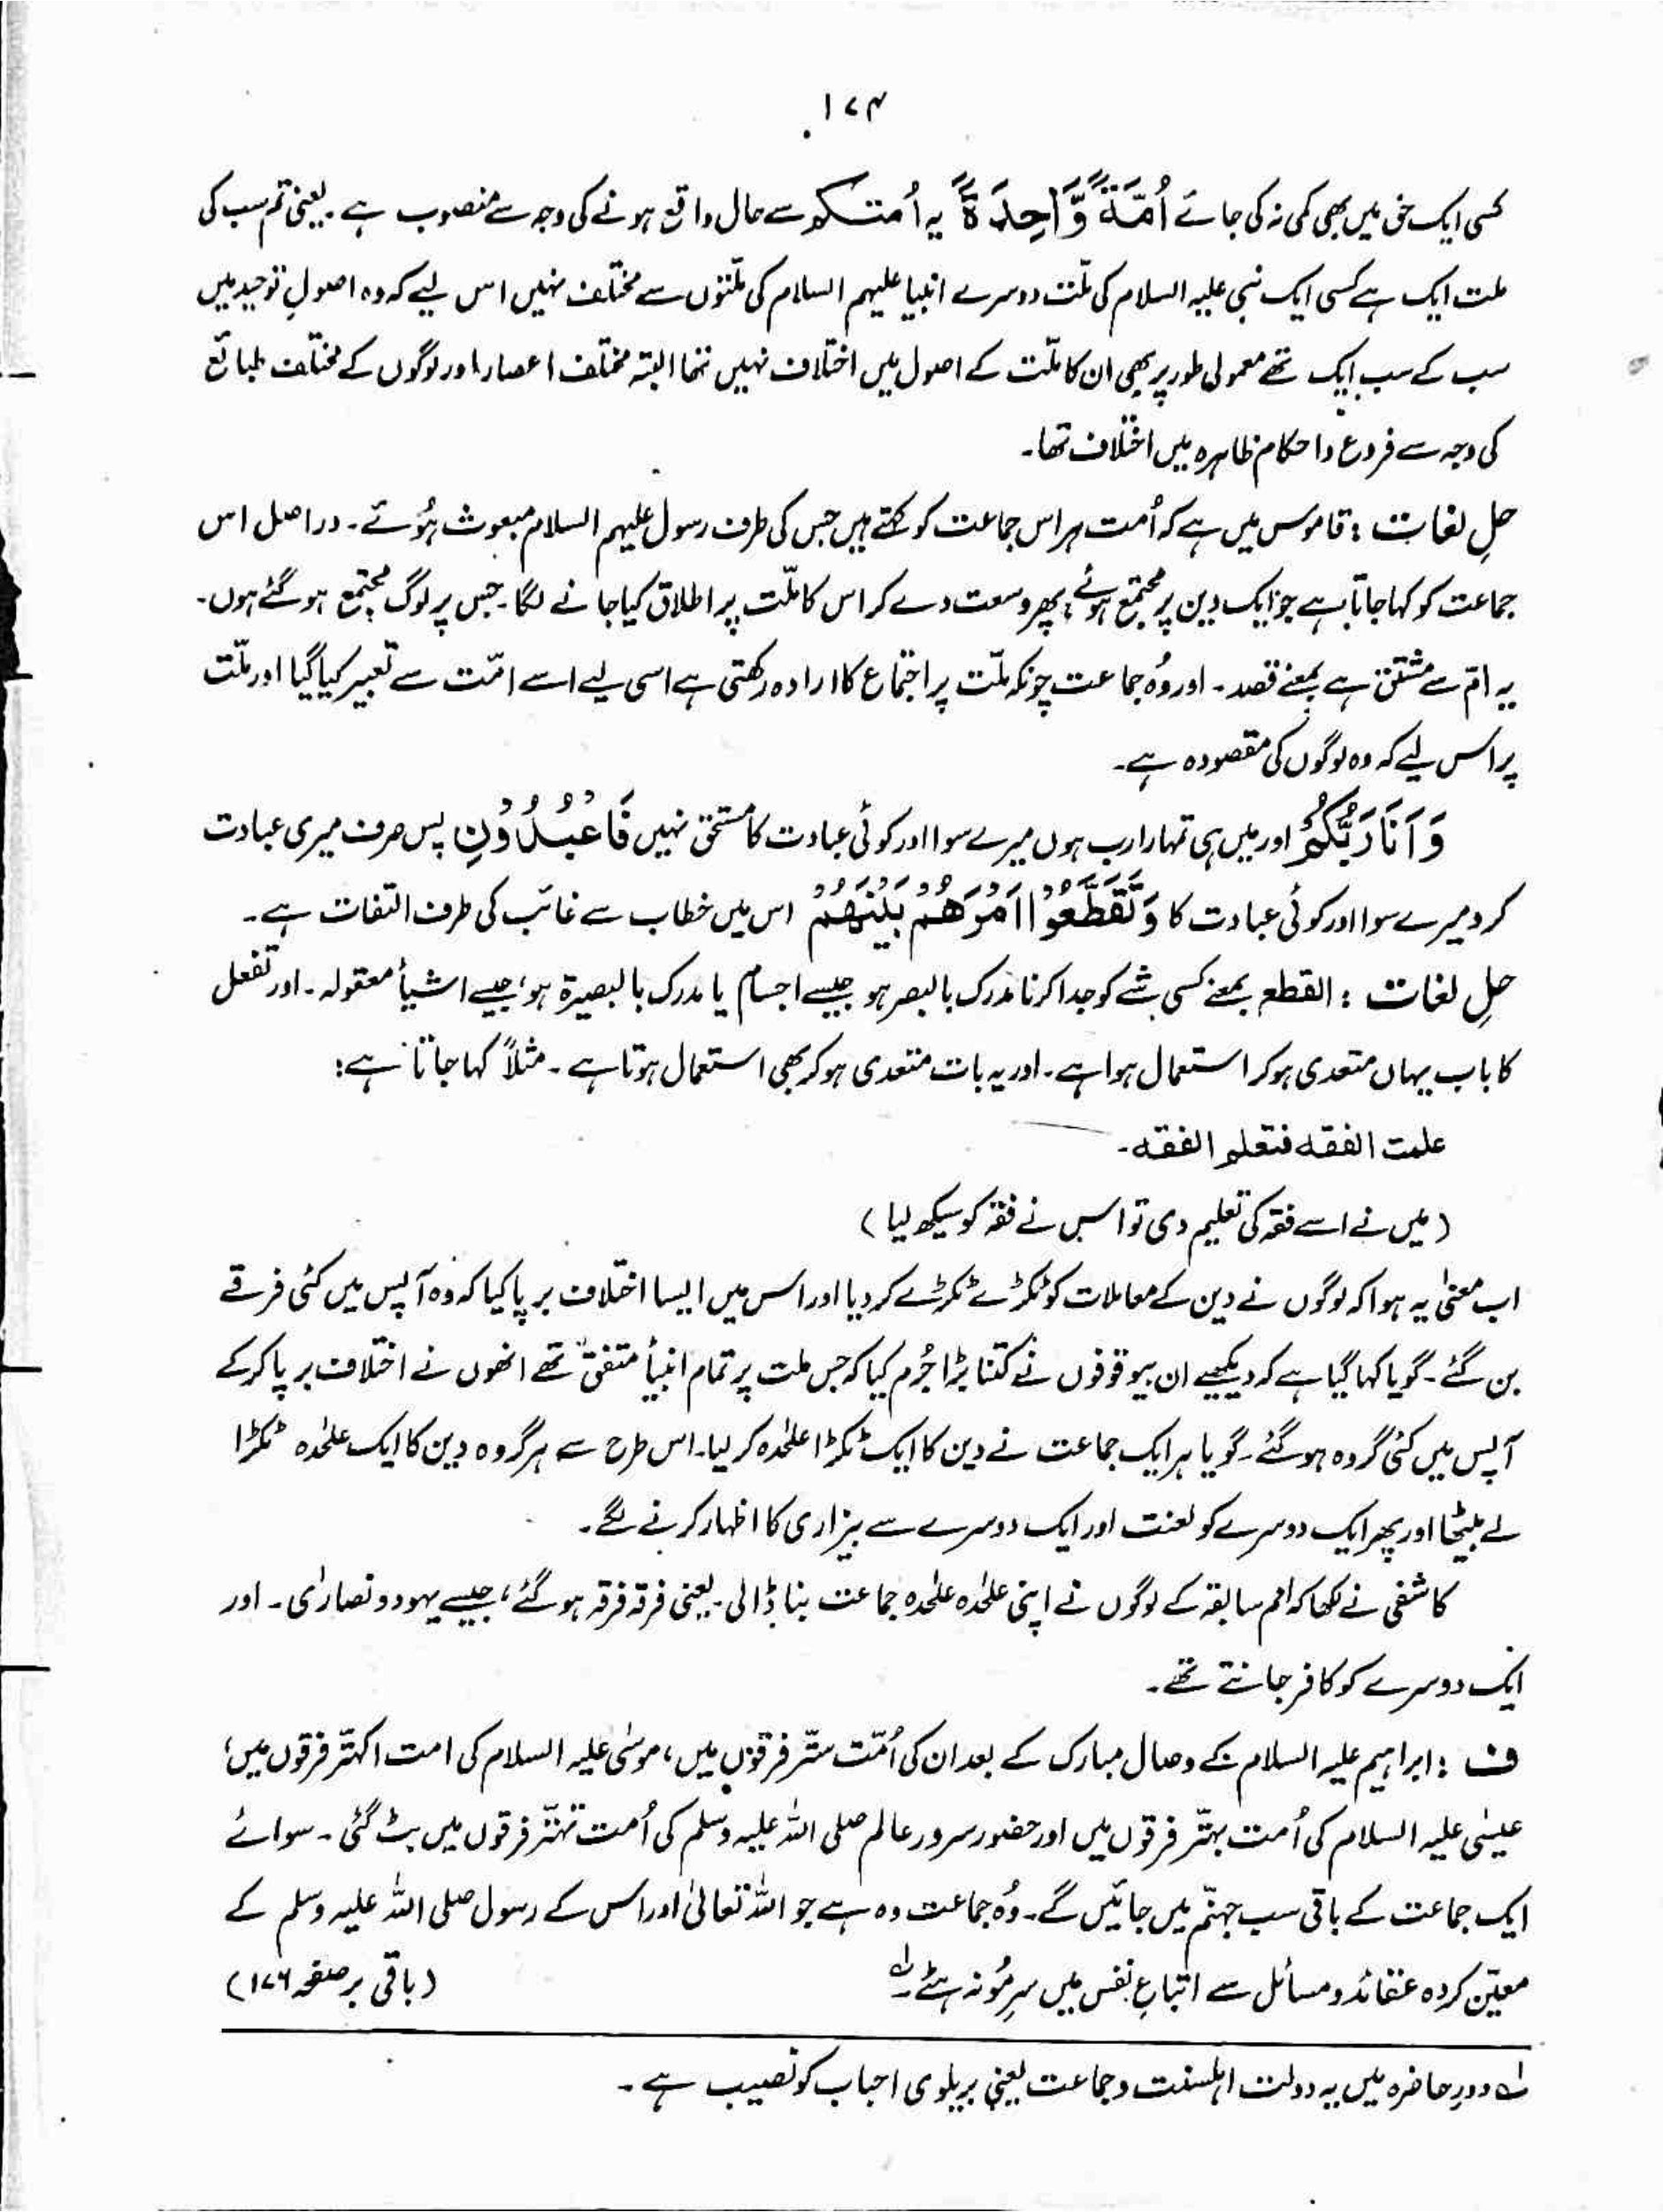 ۱۷۴
کسی ایک حق میں بھی کمی نہ کی جائے اُمَّةً وَّاحِدَةً یہ اُمتکم سے حال واقع ہونے کی وجہ سے منصوب ہے۔ یعنی تم سب کی
ملت ایک ہے کسی ایک نبی علیہ السلام کی ملّت دوسرے انبیا علیہم السلام کی ملّتوں سے مختلف نہیں اس لیے کہ وہ اصولِ توحید میں
سب کے سب ایک تھے معمولی طور پر بھی ان کا ملّت کے اصول میں اختلاف نہیں تھا البتہ مختلف اعصار اور لوگوں کے مختلف طبائع
کی وجہ سے فروع و احکام ظاہرہ میں اختلاف تھا۔
حلِ لغات : قاموس میں ہے کہ اُمت ہر اس جماعت کو کہتے ہیں جس کی طرف رسول علیہم السلام مبعوث ہُوئے۔ دراصل اس
جماعت کو کہا جاتا ہے جو ایک دین پر مجتمع ہوئے، پھر وسعت دے کر اس کا ملّت پر اطلاق کیا جانے لگا۔ جس پر لوگ مجتمع ہو گئے ہوں۔
یہ امّ سے مشتق ہے بمعنے قصد۔ اور وُہ جماعت چونکہ ملّت پر اجتماع کا ارادہ رکھتی ہے اسی لیے اسے امّت سے تعبیر کیا گیا اور ملّت
پر اس لیے کہ وہ لوگوں کی مقصودہ ہے۔
وَ اَنَا رَبُّکُمْ اور میں ہی تمہارا رب ہوں میرے سوا اور کوئی عبادت کا مستحق نہیں فَاعْبُدُوْنِ پس صرف میری عبادت
کرو میرے سوا اور کوئی عبادت کا وَتَقَطَّعُوْۤا اَمْرَهُمْ بَيْنَهُمْ اس میں خطاب سے غائب کی طرف التفات ہے۔
حلِ لغات : القطع بمعنے کسی شے کو جدا کرنا مدرک بالبصر ہو جیسے اجسام یا مدرک بالبصیرۃ ہو، جیسے اشیأ معقولہ۔ اور تفعل
کا باب یہاں متعدی ہو کر استعمال ہوا ہے۔ اور یہ بات متعدی ہو کر بھی استعمال ہوتا ہے۔ مثلاً کہا جاتا ہے:
علمت الفقه فتعلم الفقه۔
(میں نے اسے فقہ کی تعلیم دی تو اس نے فقہ کو سیکھ لیا)
اب معنیٰ یہ ہوا کہ لوگوں نے دین کے معاملات کو ٹکڑے ٹکڑے کر دیا اور اس میں ایسا اختلاف برپا کیا کہ وہ آپس میں کئی فرقے
بن گئے۔ گویا کہا گیا ہے کہ دیکھیے ان بیوقوفوں نے کتنا بڑا جُرم کیا کہ جس ملت پر تمام انبیأ متفق تھے انھوں نے اختلاف برپا کر کے
آپس میں کئی گروہ ہو گئے۔ گویا ہر ایک جماعت نے دین کا ایک ٹکڑا علٰحدہ کر لیا۔ اس طرح سے ہر گروہ دین کا ایک علٰحدہ ٹکڑا
لے بیٹھا اور پھر ایک دوسرے کو لعنت اور ایک دوسرے سے بیزاری کا اظہار کرنے لگے۔
کاشفی نے لکھا کہ امم سابقہ کے لوگوں نے اپنی علٰحدہ علٰحدہ جماعت بنا ڈالی۔ یعنی فرقہ فرقہ ہو گئے، جیسے یہود و نصارٰی۔ اور
ایک دوسرے کو کافر جانتے تھے۔
ف : ابراہیم علیہ السلام کے وصال مبارک کے بعد ان کی اُمّت ستّر فرقوں میں، موسٰی علیہ السلام کی امت اکہتّر فرقوں میں،
عیسٰی علیہ السلام کی اُمت بہتّر فرقوں میں اور حضور سرور عالم صلی اللہ علیہ وسلم کی اُمت تہتّر فرقوں میں بٹ گئی۔ سوائے
ایک جماعت کے باقی سب جہنّم میں جائیں گے۔ وُہ جماعت وہ ہے جو اللہ تعالیٰ اور اس کے رسول صلی اللہ علیہ وسلم کے
معیّن کردہ عقائد و مسائل سے اتباعِ نفس میں سرِمُو نہ ہٹے۔ لہ (باقی بر صفحہ ۱۷۶)
لہ دورِ حاضرہ میں یہ دولت اہلسنت و جماعت یعنی بریلوی احباب کو نصیب ہے۔